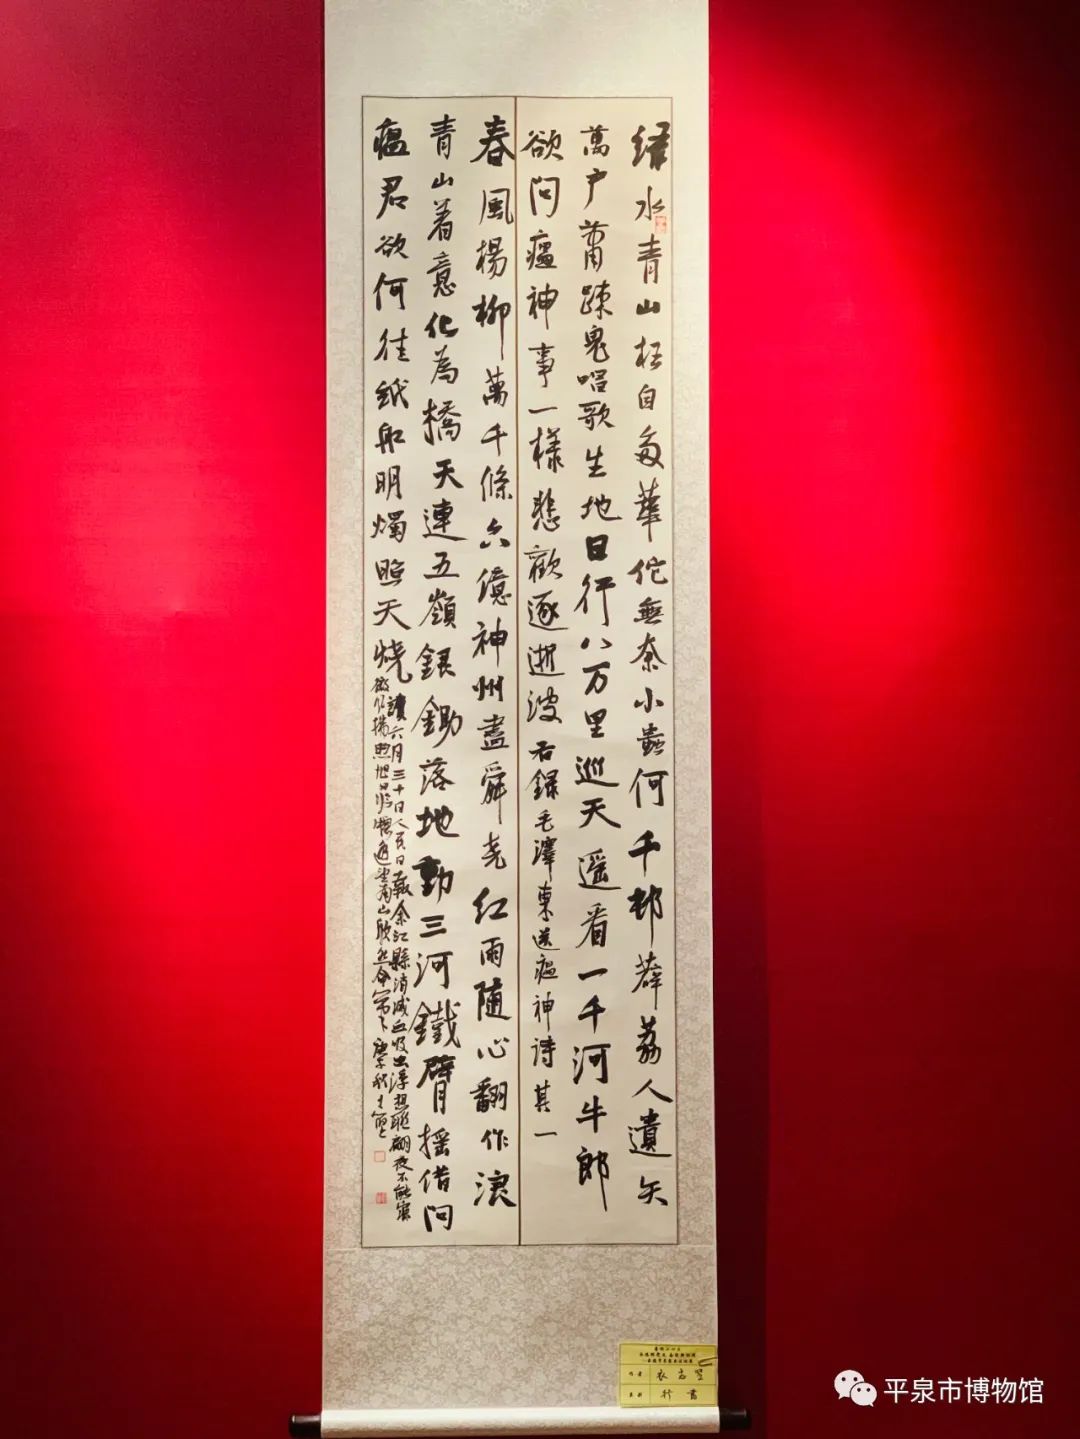 绿水青山枉自多華佗無奈小蟲何千邨薜荔人遺矢
萬户蕭疎鬼唱歌坐地日行八万里巡天遥看一千河牛郎
欲问瘟神事一樣悲歡逐逝波右録毛澤東送瘟神诗其一
春風楊柳萬千條六億神州盡舜尧红雨随心翻作浪
青山着意化為橋天連五嶺銀鋤落地動三河鐵臂摇借问
瘟君欲何往纸船明燭照天烧
讀六月三十日人民日報余江縣消滅血吸虫浮想联翩夜不能寐
微风拂煦旭日临窗遥望南山欣然命笔庚子秋
作者
行書
平泉市博物馆